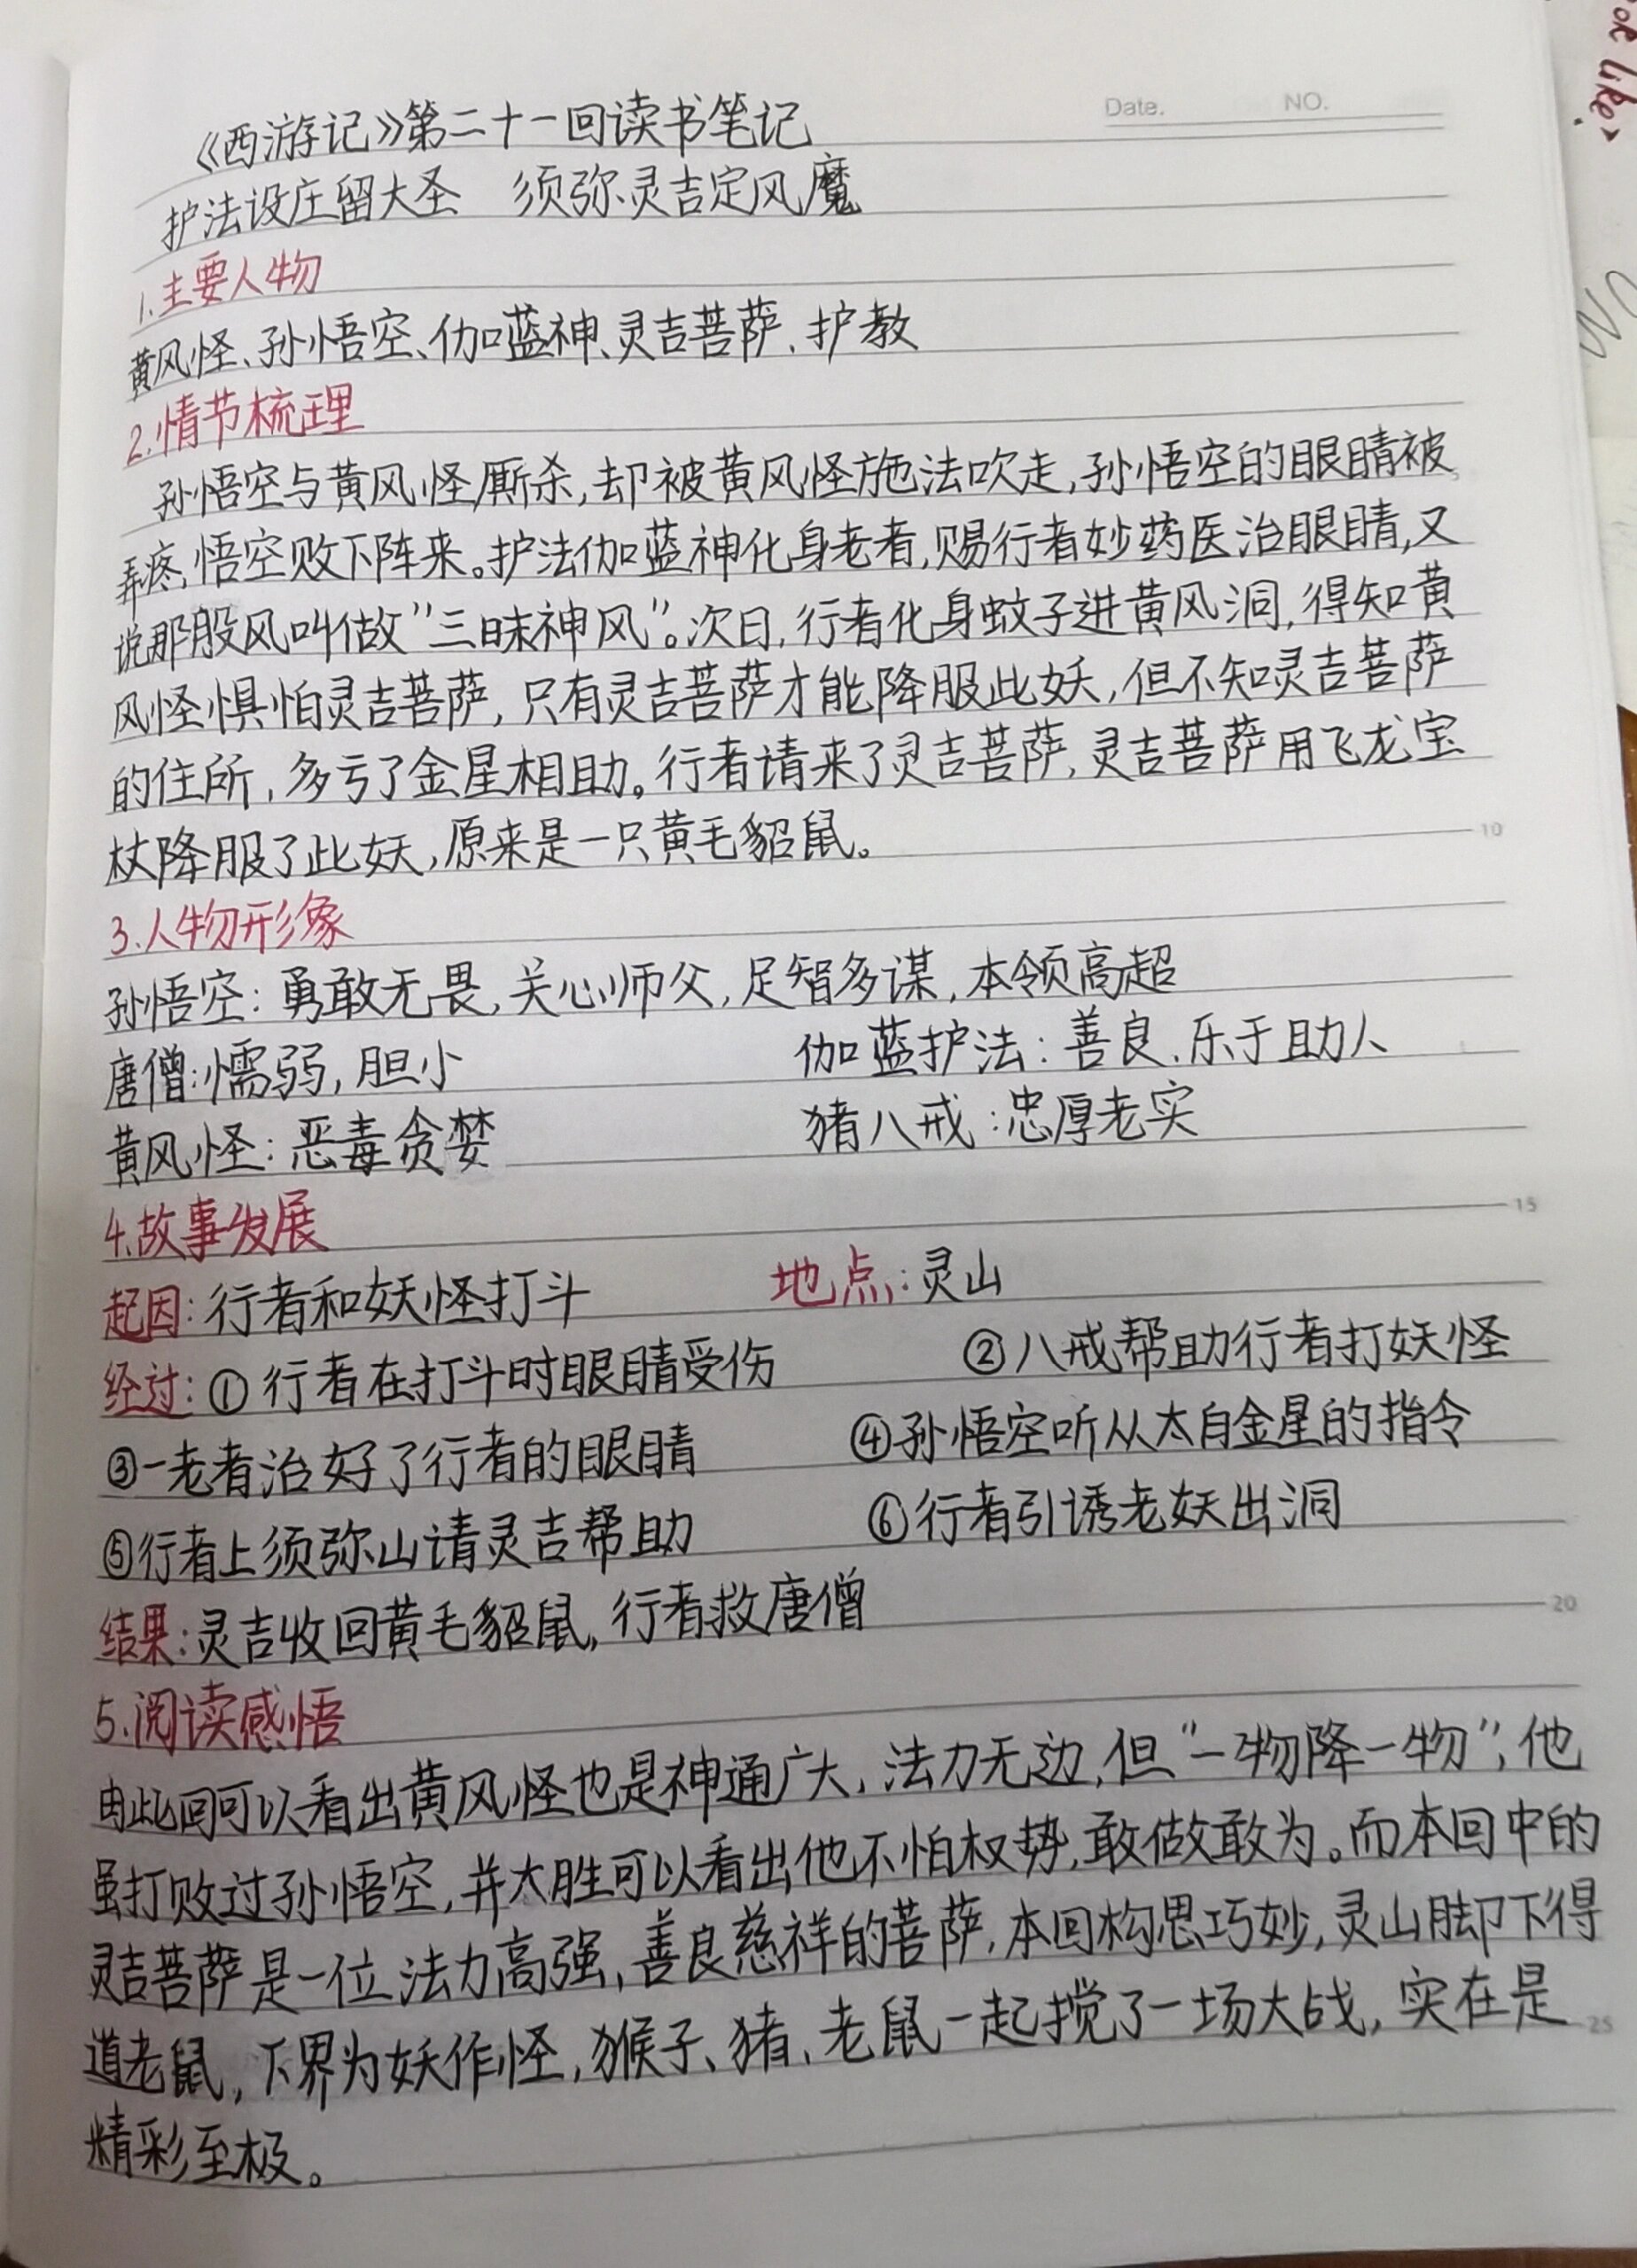 Date. NO.
《西游记》第二十一回读书笔记
护法设庄留大圣 须弥灵吉定风魔
1.主要人物
黄风怪、孙悟空、伽蓝神、灵吉菩萨、护教
2.情节梳理
孙悟空与黄风怪厮杀,却被黄风怪施法吹走,孙悟空的眼睛被
弄疼,悟空败下阵来。护法伽蓝神化身老者,赐行者妙药医治眼睛,又
说那股风叫做"三昧神风"。次日,行者化身蚊子进黄风洞,得知黄
风怪惧怕灵吉菩萨,只有灵吉菩萨才能降服此妖,但不知灵吉菩萨
的住所,多亏了金星相助。行者请来了灵吉菩萨,灵吉菩萨用飞龙宝
杖降服了此妖,原来是一只黄毛貂鼠。
10
3.人物形象
孙悟空:勇敢无畏,关心师父,足智多谋,本领高超
唐僧:懦弱,胆小 伽蓝护法:善良、乐于助人
黄风怪:恶毒贪婪 猪八戒:忠厚老实
4.故事发展
15
起因:行者和妖怪打斗 地点:灵山
经过:①行者在打斗时眼睛受伤 ②八戒帮助行者打妖怪
③一老者治好了行者的眼睛 ④孙悟空听从太白金星的指令
⑤行者上须弥山请灵吉帮助 ⑥行者引诱老妖出洞
结果:灵吉收回黄毛貂鼠,行者救唐僧
20
5.阅读感悟
由此回可以看出黄风怪也是神通广大,法力无边,但"一物降一物",他
虽打败过孙悟空,并大胜可以看出他不怕权势,敢做敢为。而本回中的
灵吉菩萨是一位法力高强,善良慈祥的菩萨,本回构思巧妙,灵山脚下得
道老鼠,下界为妖作怪,猴子、猪、老鼠一起搅了一场大战,实在是
25
精彩至极。
ok like,